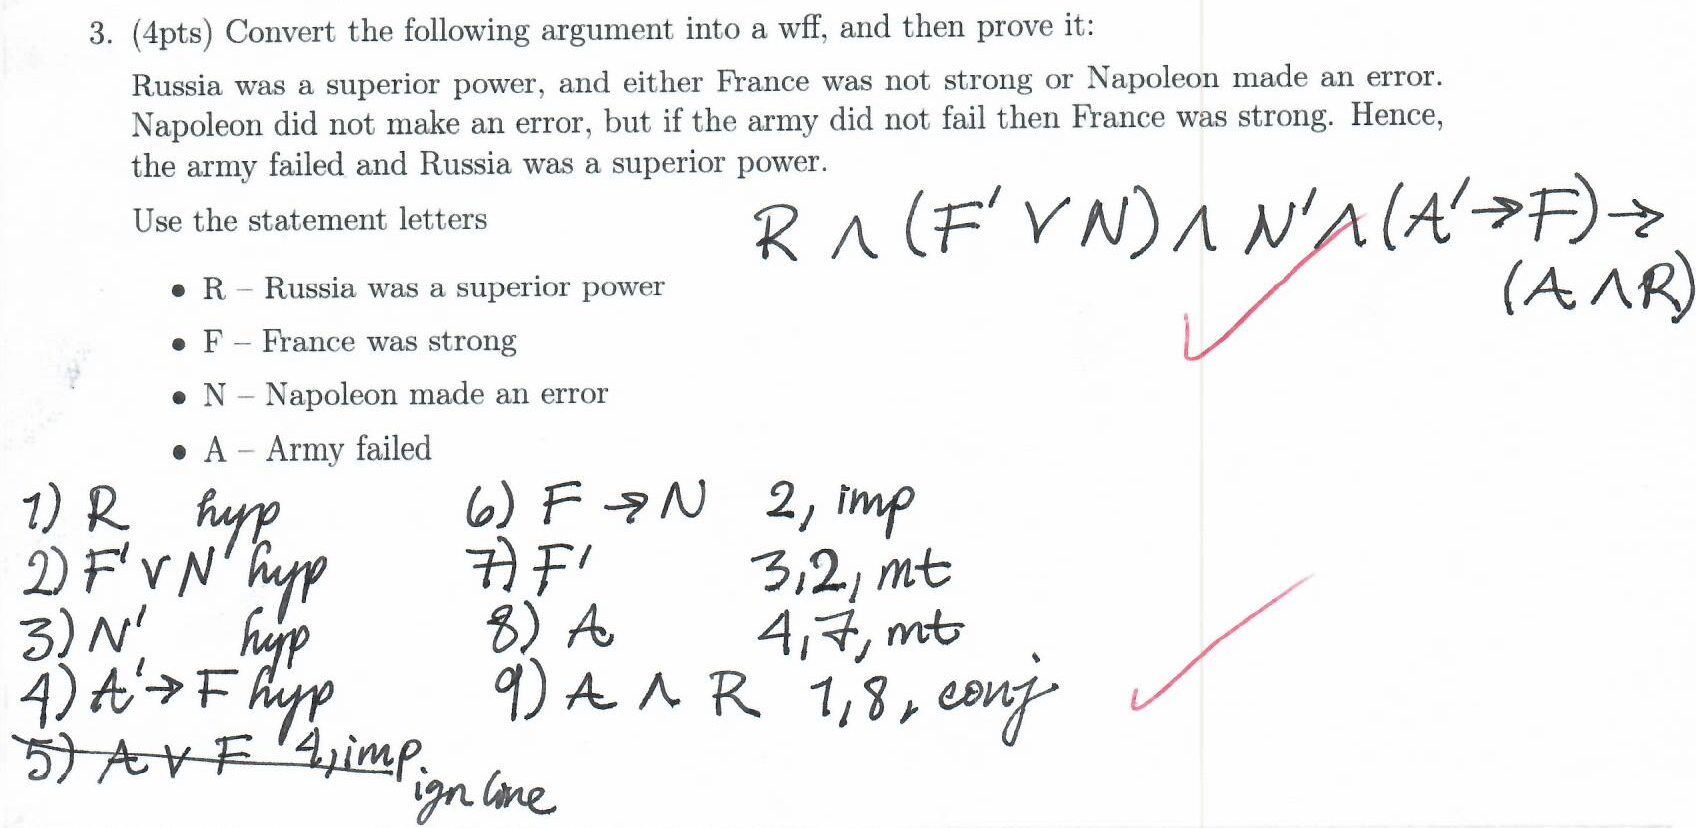 3. (4pts) Convert the following argument into a wff, and then prove it:
Russia was a superior power, and either France was not strong or Napoleon made an error.
Napoleon did not make an error, but if the army did not fail then France was strong. Hence,
the army failed and Russia was a superior power.
Use the statement letters
R ∧ (F' ∨ N) ∧ N' ∧ (A' → F) →
(A ∧ R)
• R – Russia was a superior power
• F – France was strong
• N – Napoleon made an error
• A – Army failed
1) R hyp
2) F' ∨ N hyp
3) N' hyp
4) A' → F hyp
5) A ∨ F 4, imp
ign line
6) F → N 2, imp
7) F' 3,2, mt
8) A 4,7, mt
9) A ∧ R 1,8, conj